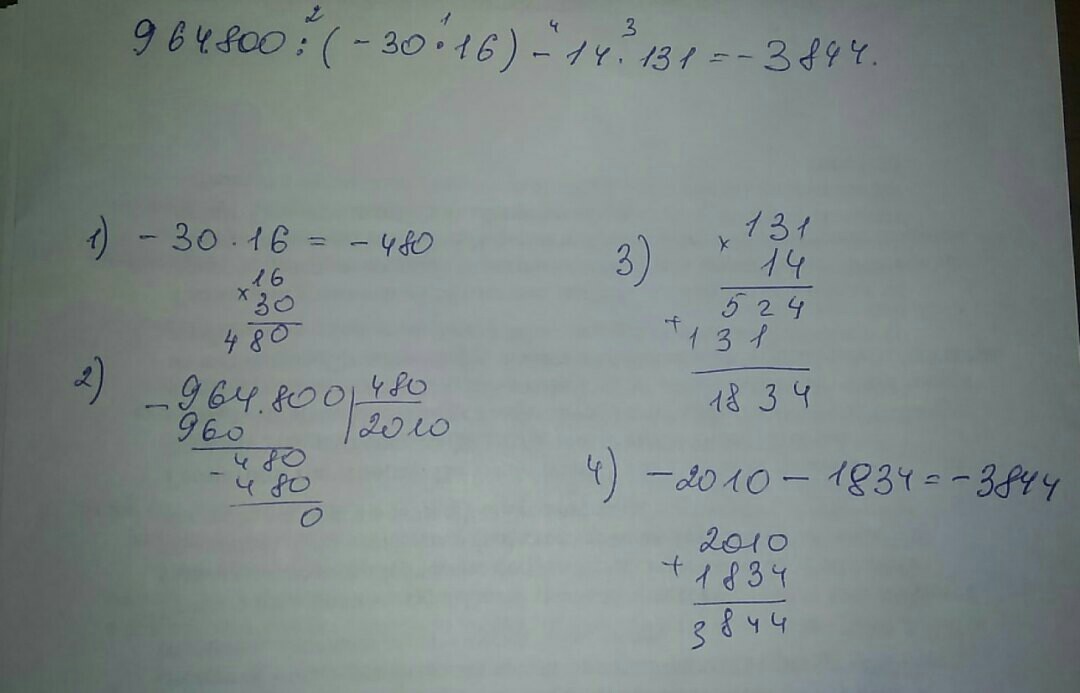 964800 : (-30 · 16) - 14 · 131 = -3844.
2 1 4 3
1) -30 · 16 = -480
×16
30
480
2) -964.800 | 480
960 | 2010
-480
480
0
3) ×131
14
524
+131
1834
4) -2010 - 1834 = -3844
+2010
1834
3844